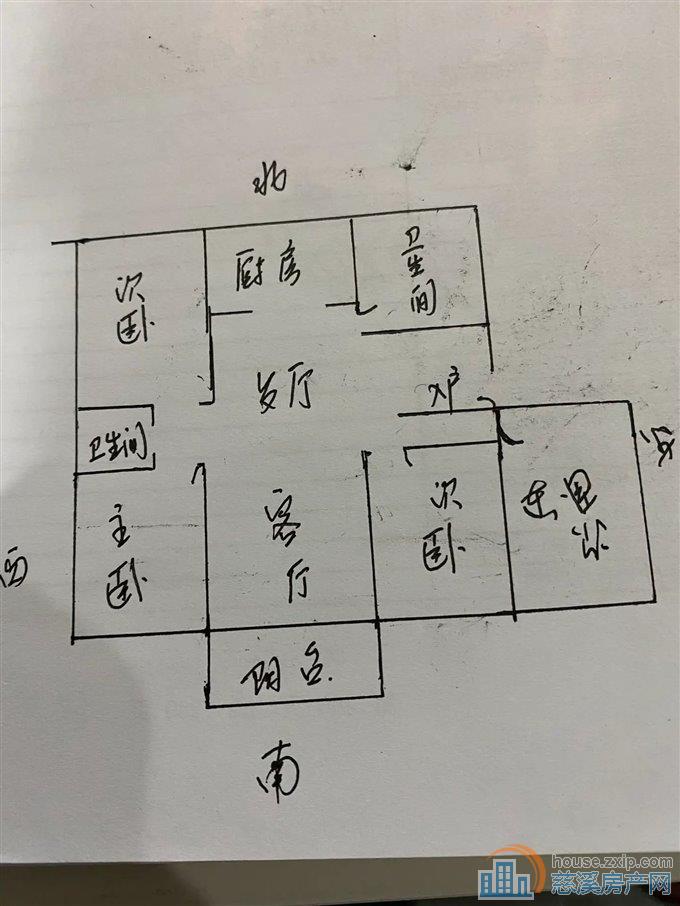 北
次卧
厨房
卫生间
歺厅
入户
卫生间
东
主卧
客厅
次卧
西
阳台
南
house.zxip.com
慈溪房产网